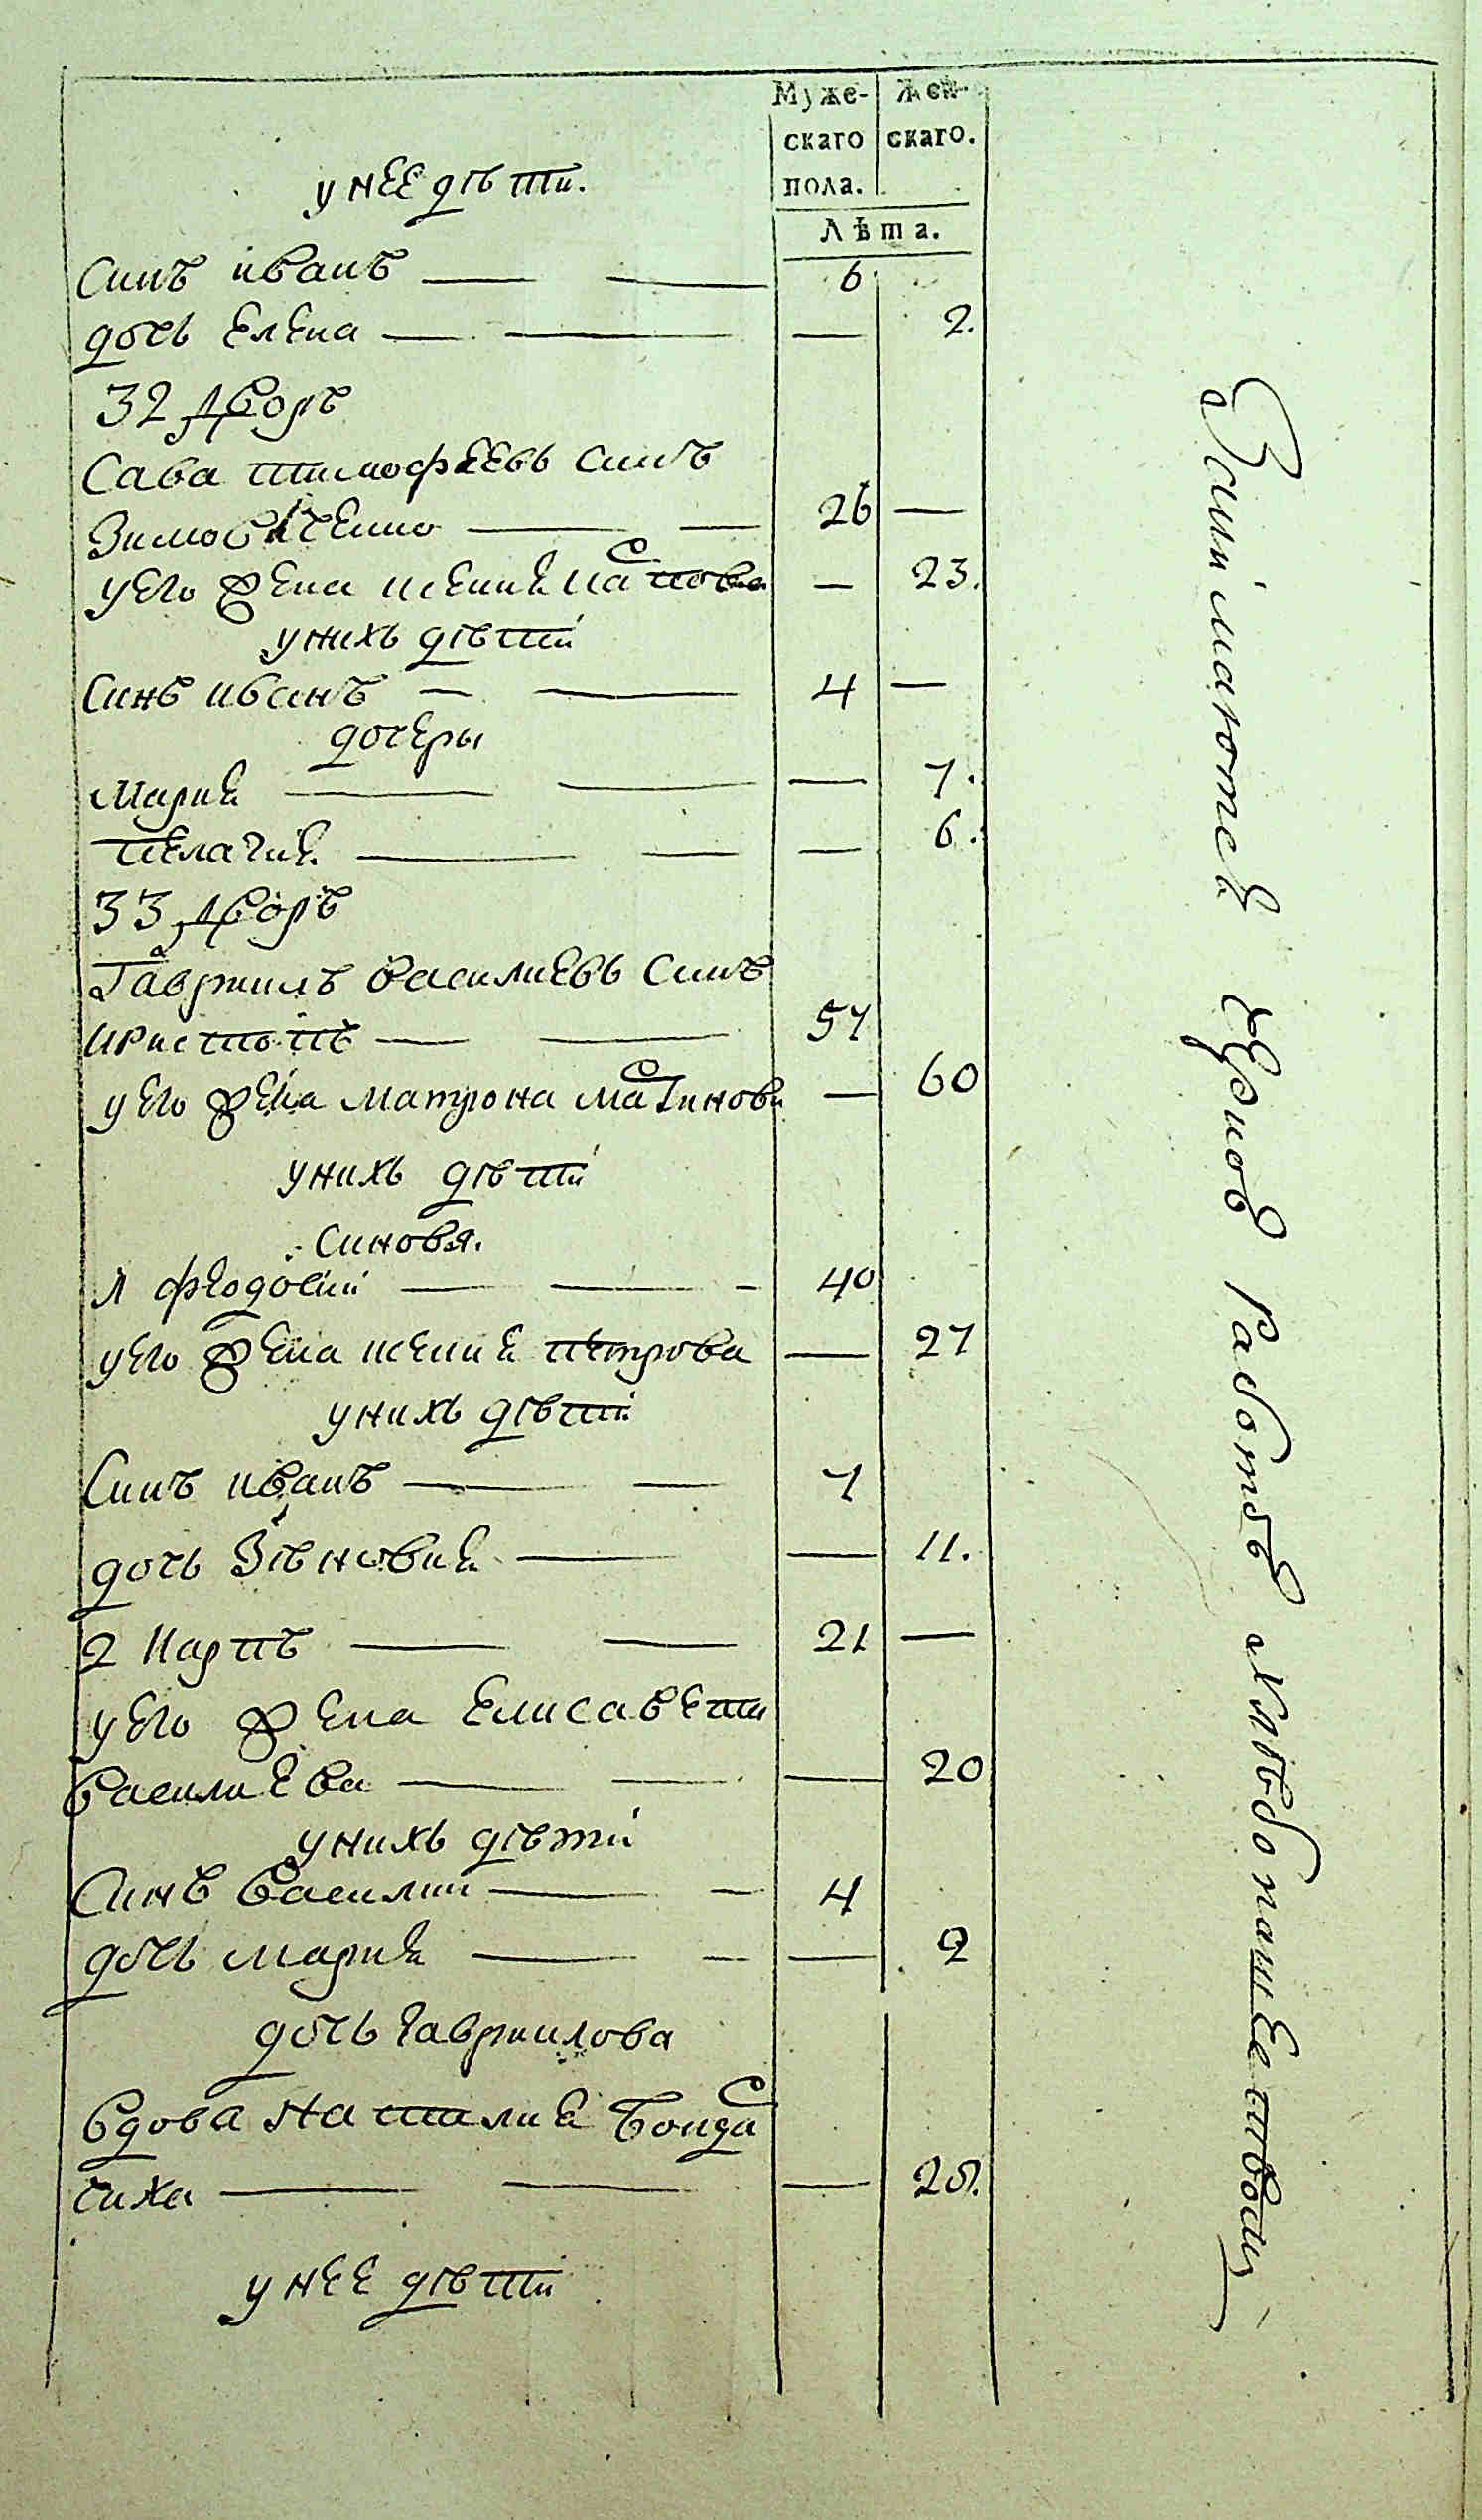 Муже- Жен-
скаго скаго.
пола.
Лѣта.
у нее дѣти.
Синъ иванъ — — 6.
дочь елена — — — 2.
32 дворъ
Сава тимофеевъ синъ
Зимовченко — — 26 —
у его жена ксения карпова — 23.
у нихъ дѣти
Синъ иванъ — — 4 —
дочеры
Мария — — — 7.
пелагия — — — 6.
33 дворъ
Гавриилъ василиевъ синъ
Христопъ — — 57
у его жена матрона мартинова — 60
у нихъ дѣти
Синовя.
1 Феодосий — — - 40
у его жена ксения петрова — 27
у нихъ дѣти
Синъ иванъ — — 7
дочь Зѣновия — — 11.
2 Карпъ — — 21 —
у его жена елисавети
василиева — — — 20
у нихъ дѣти
Синъ василий — — 4
дочь мария — — — 2
дочь гаврилова
вдова наталия бондар
чиха — — — 28.
у нее дѣти
Занимаются черною работою и хлѣбопашеством